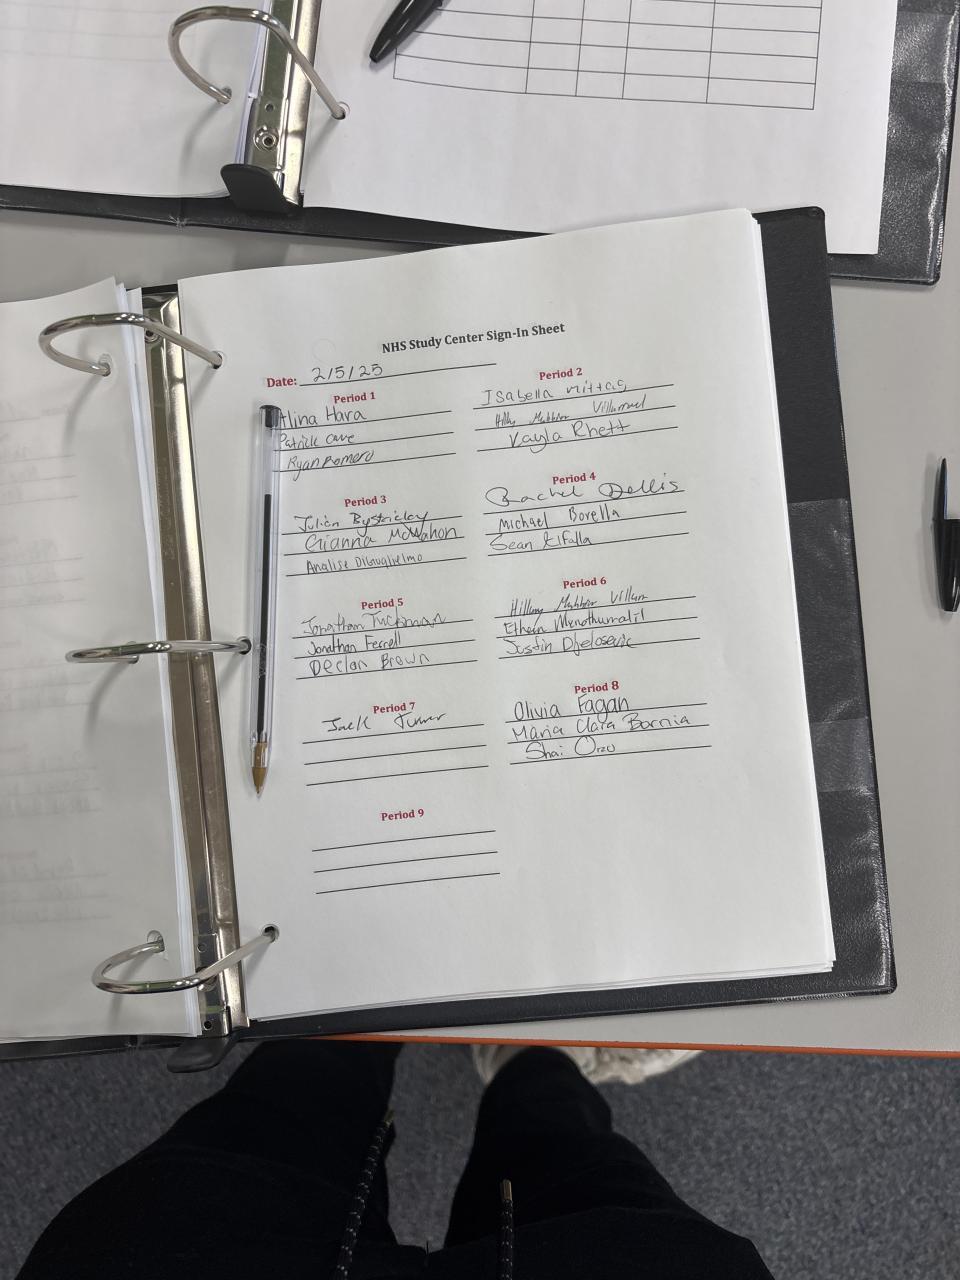 NHS Study Center Sign-In Sheet
Date: 2/5/25
Period 1
Alina Hara
Patrick Cave
Ryan Romero
Period 2
Isabella
Villarreal
Kayla Rhett
Period 3
Julien
Gianna McMahon
Analise DiGuglielmo
Period 4
Rachel Dellis
Michael Borella
Sean
Period 5
Jonathan Tuchman
Jonathan Ferrell
Declan Brown
Period 6
Hillary
Ethan
Justin
Period 7
Jack Turner
Period 8
Olivia Fagan
Maria Clara Bornia
Shai
Period 9